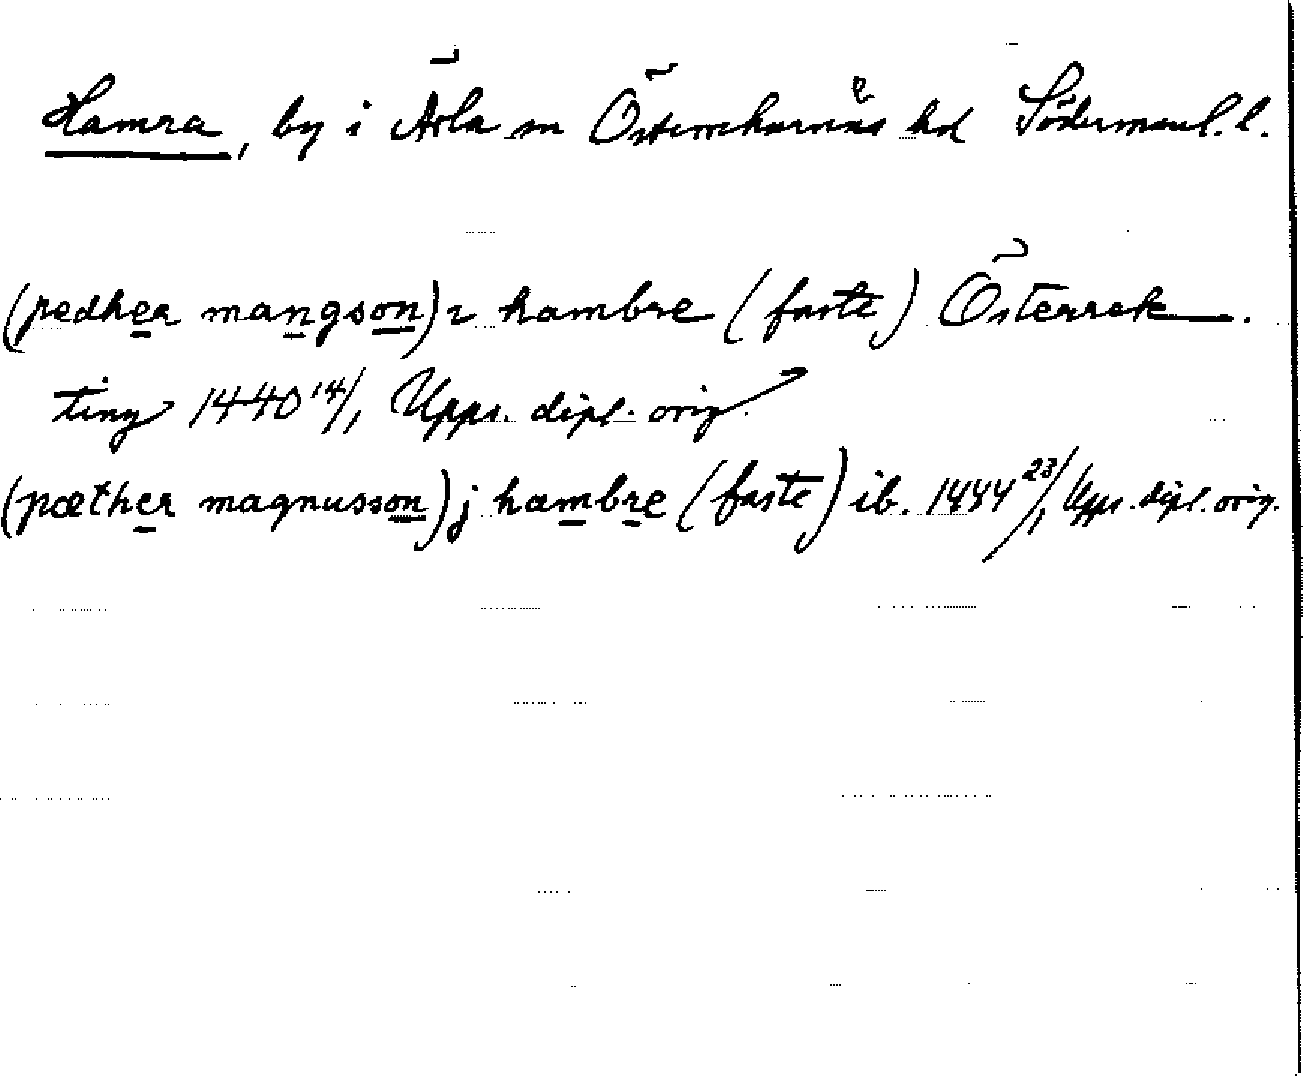 Hamra, by i Ärla sn Österrekarnäs hd Södermanl. l.
(pedher mangson) ɪ hambre (faste) Österrek.
ting 1440 14/1 Upps. dipl. orig.
(pæther magnusson) j hambre (faste) ib. 1444 23/1 Upps. dipl. orig.